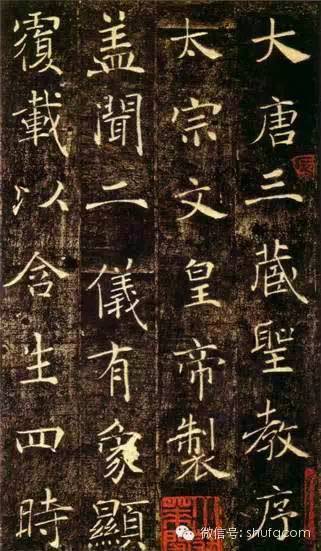 大唐三藏聖教序
太宗文皇帝製
盖聞二儀有象顯
覆載以含生四時
微信号: shufq_com